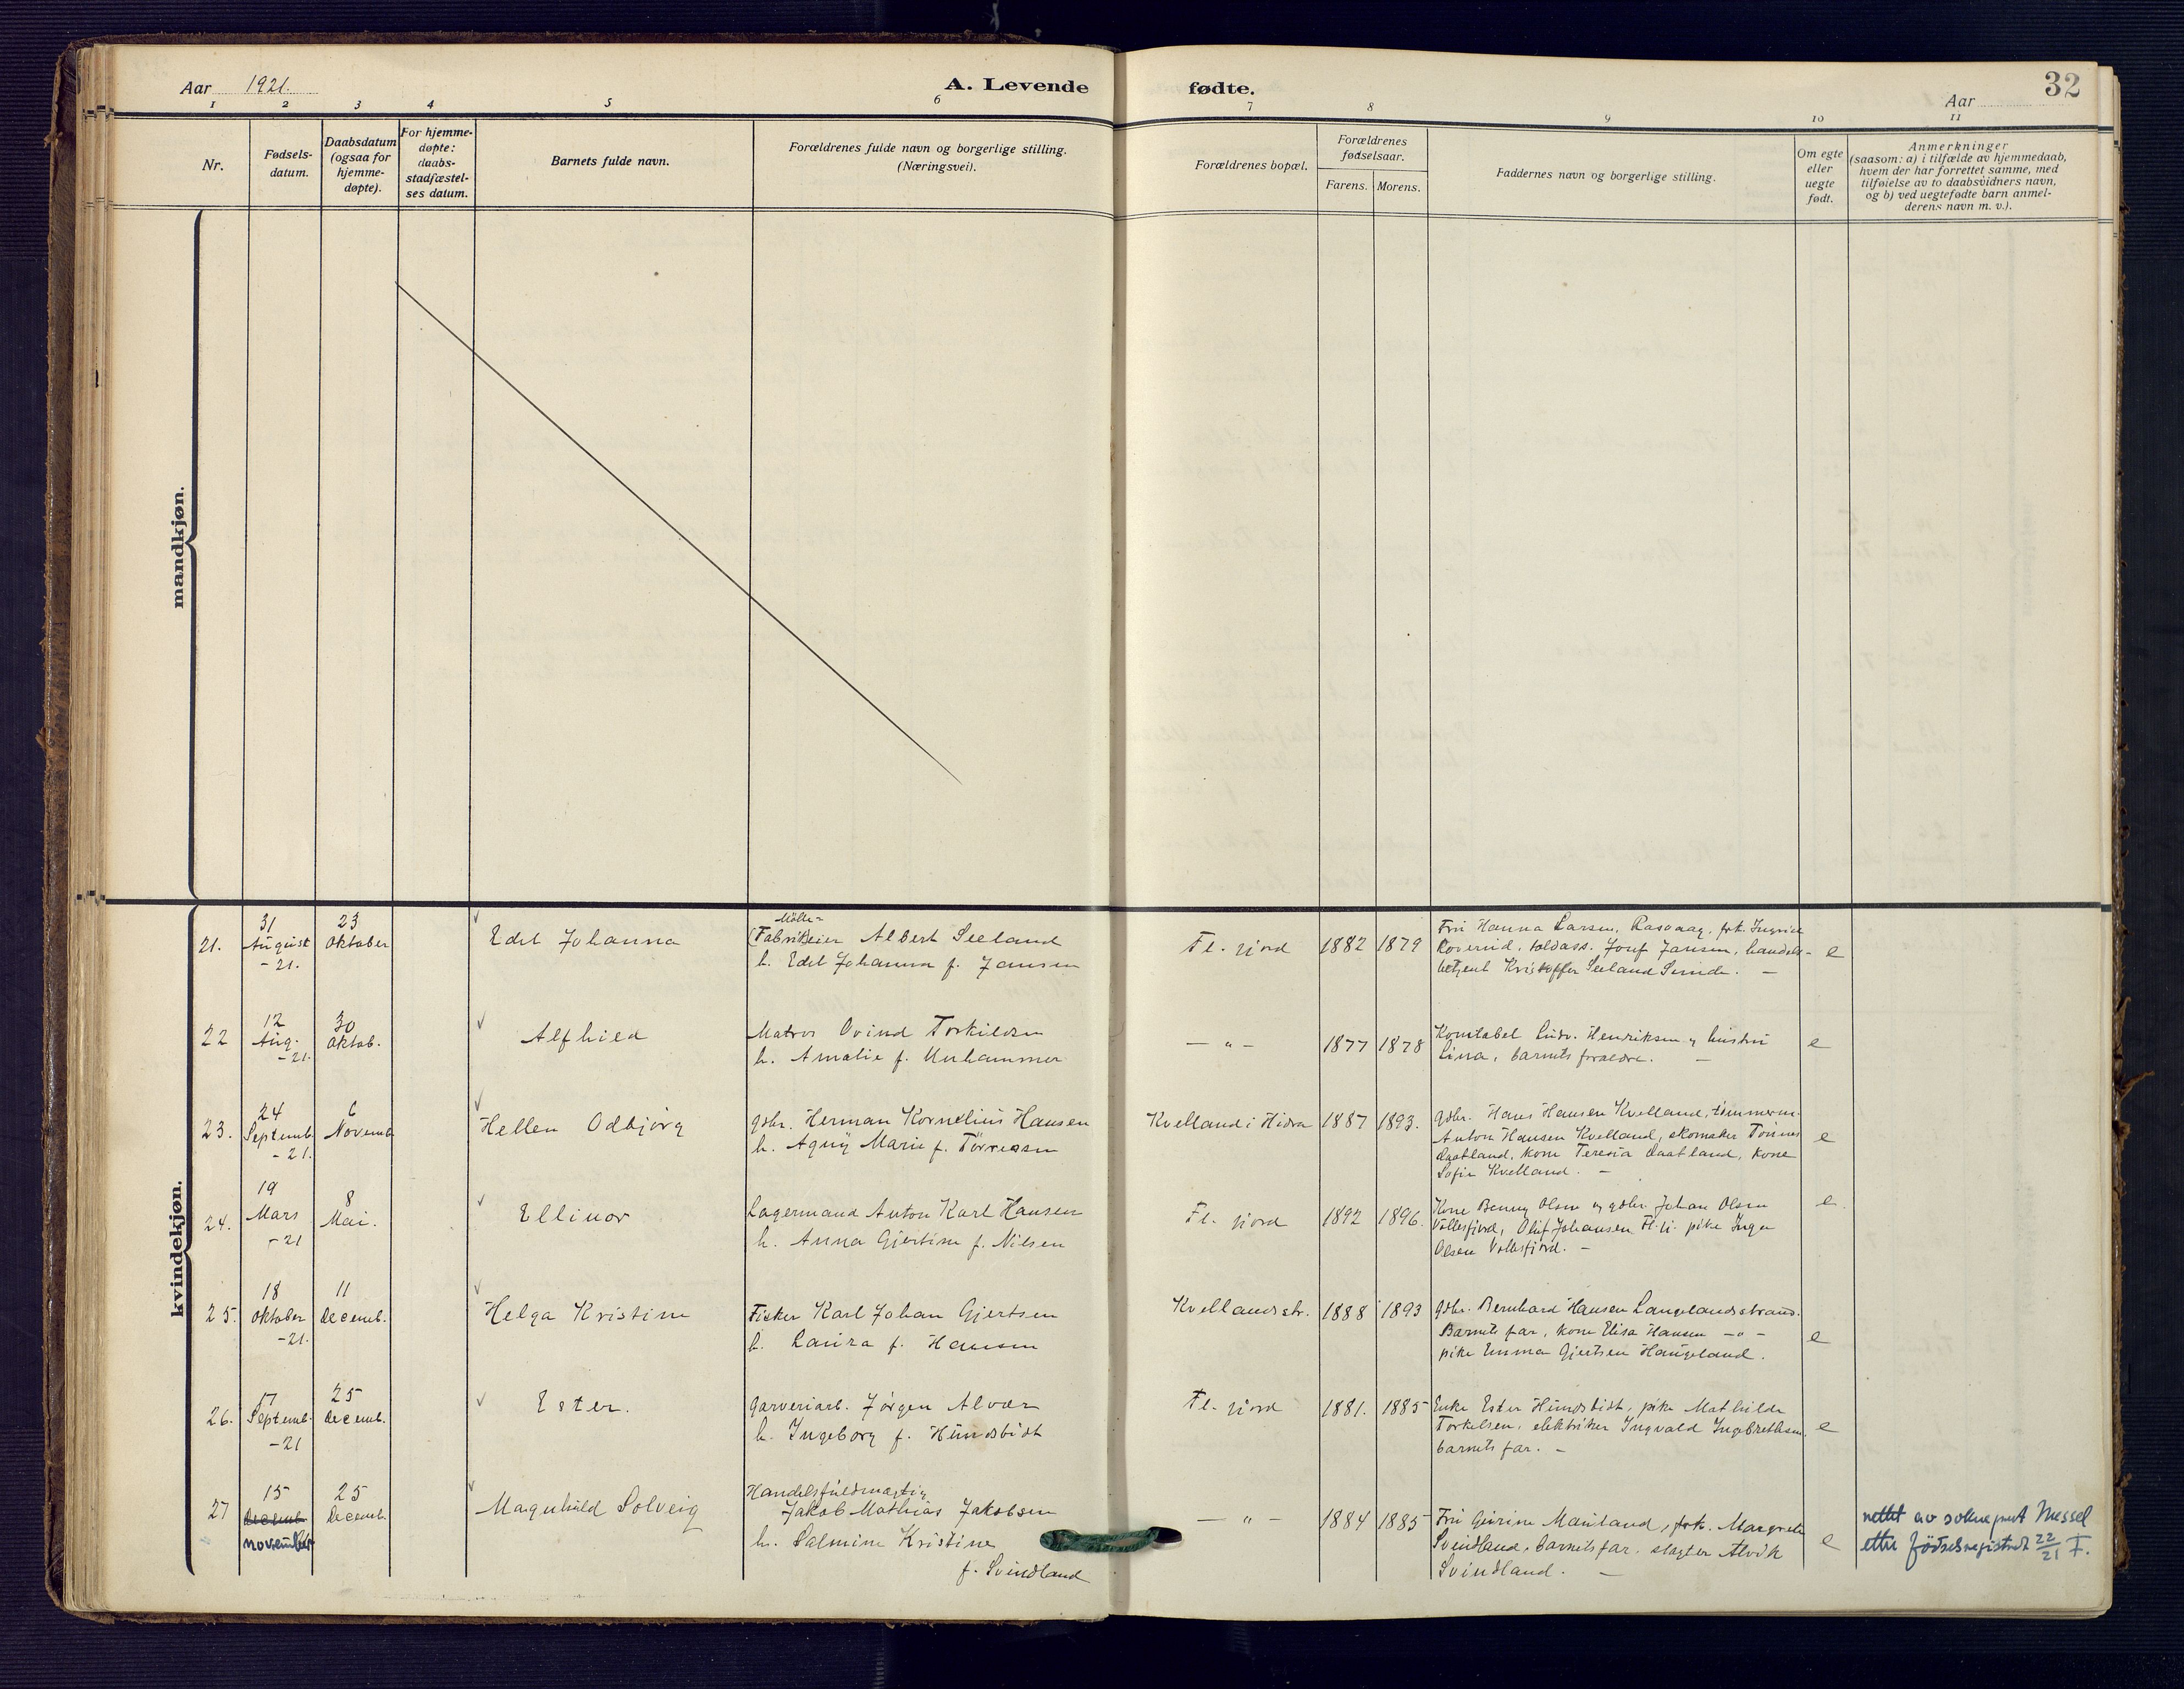 Aar 1921.
A. Levende fødte.
Aar
32
1 2 3 4 5 6 7 8 9 10 11
Nr.
Fødsels-
datum.
Daabsdatum
(ogsaa for
hjemme-
døpte).
For hjemme-
døpte:
daabs-
stadfæstel-
ses datum.
Barnets fulde navn.
Forældrenes fulde navn og borgerlige stilling.
(Næringsvei).
Forældrenes bopæl.
Forældrenes
fødselsaar.
Farens. Morens.
Faddernes navn og borgerlige stilling.
Om egte
eller
uegte
født.
Anmerkninger
(saasom: a) i tilfælde av hjemmedaab,
hvem der har forrettet samme, med
tilføielse av to daabsvidners navn,
og b) ved uegtefødte barn anmel-
derens navn m. v.).
mandkjøn.
kvindekjøn.
21.
31
August
-21.
23
Oktober
Edel Johanna
Mölle-
(Fabrik)eier Albert Seeland
h. Edel Johanna f. Jansen
Fl. fjord
1882
1879
Fru Hanna Larsen, Rasvaag, frk. Ingrid
Roverud, toldass. Josef Jansen, handels-
betjent Kristoffer Seeland Seinde. -
e
22
12
Aug.
-21.
30
Oktob.
Alfhild
Matros Ovind Torkildsen
h. Amalie f. Unhammer
- " -
1877
1878
Konstabel Ludv. Henriksen og hustru
Lina, barnets foraeldre. -
e
23.
24
Septemb.
-21.
6
Novemb
Hellen Odbjörg
gbr. Herman Kornelius Hansen
h. Agny Marie f. Törresen
Kvelland i Hidra
1887
1893.
gbr. Hans Hansen Kvelland, tømmerm.
Anton Hansen Kvelland, skomaker Tönnes
Laatland, kone Teresia Laatland, kone
Sofie Kvelland. -
e
24.
19
Mars
-21
8
Mai.
Ellinor
Lagermand Anton Karl Hansen
h. Anna Gjertine f. Nilsen
Fl. fjord
1892
1896.
Kone Benny Olsen og gbr. Johan Olsen
Vollesfjord, Oluf Johansen Fl.fj. pike Inga
Olsen Vollesfjord. -
e.
25.
18
Oktober
-21.
11
Decemb.
Helga Kristine
Fisker Karl Johan Gjertsen
h. Laura f. Hansen
Kvellandsstr.
1888
1893
gbr. Bernhard Hansen Langelandsstrand.
Barnets far, kone Elisa Hansen - " -
pike Emma Gjertsen Haugeland.
e
26.
17
Septemb.
-21
25
Decemb.
Ester.
Garveriarb. Jørgen Alver
h. Ingeborg f. Hundsbidt
Fl. fjord
1881.
1885
Enke Ester Hundsbidt, pike Mathilde
Torkelsen, elektriker Ingvald Ingebrethsen,
barnets far. -
e
27
15
Decemb.
november
25
Decemb.
Magnhild Solveig
Handelsfuldmægtig
Jakob Mathias Jakobsen
h. Salmine Kristine
f. Svindland
- " -
1884
1885
Fru Geirine Mauland, frk. Margrete
Svindland, barnets far, slagter Alvik
Svindland. -
e
rettet av sokneprest Nessel
etter fødselsregistret 22/21 F.